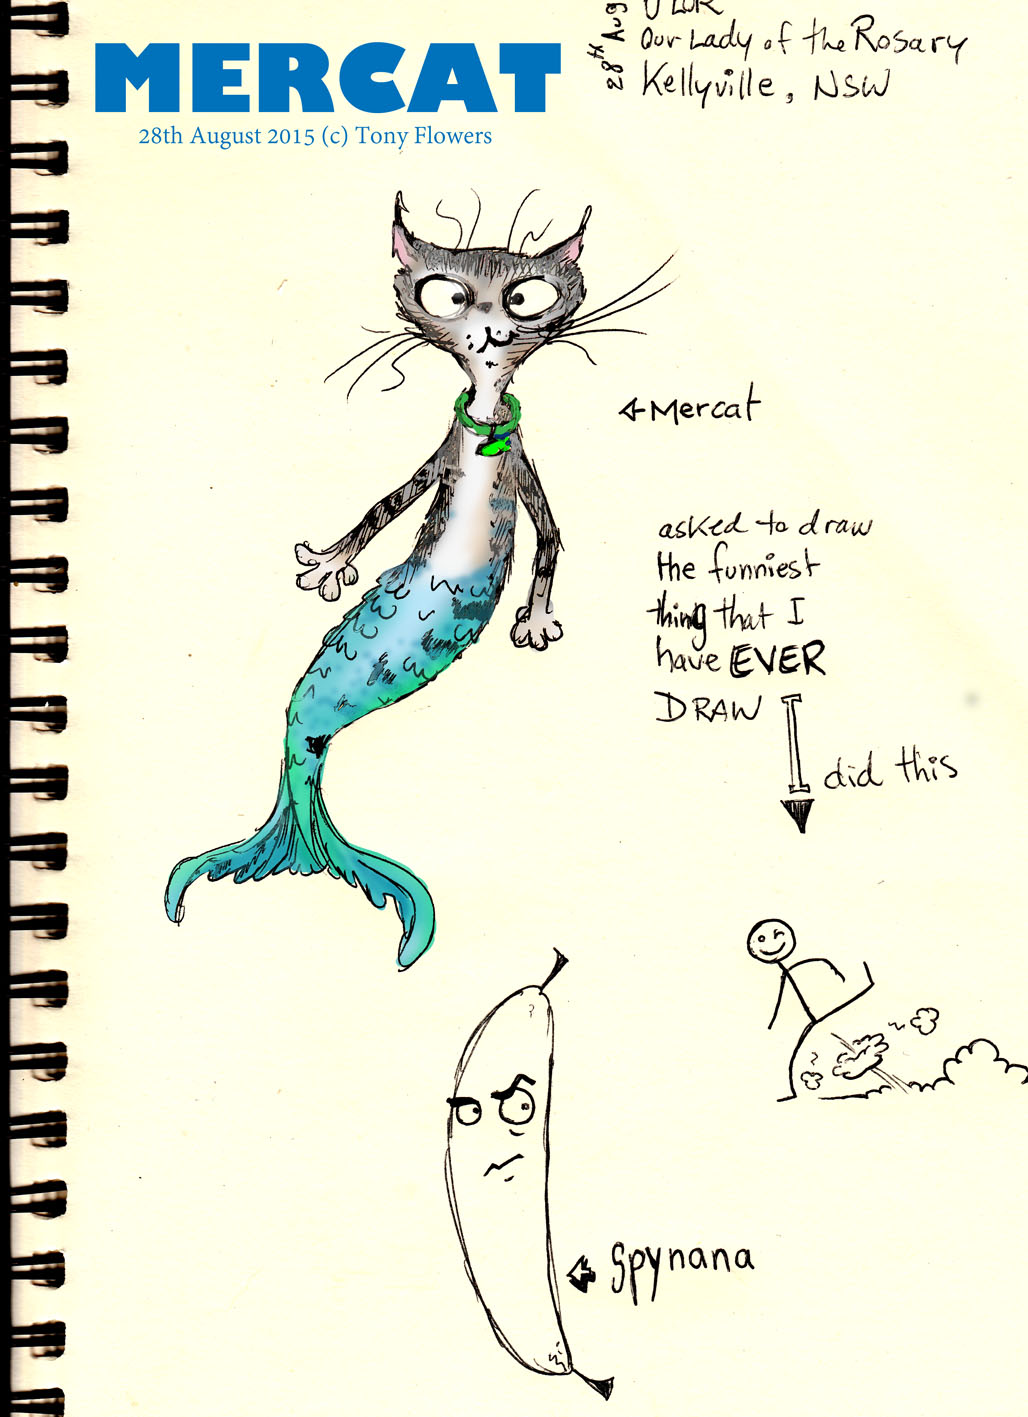 MERCAT
28th August 2015 (c) Tony Flowers
28th Aug
Our Lady of the Rosary
Kellyville, NSW
Mercat
asked to draw
the funniest
thing that I
have EVER
DRAW
did this
Spynana